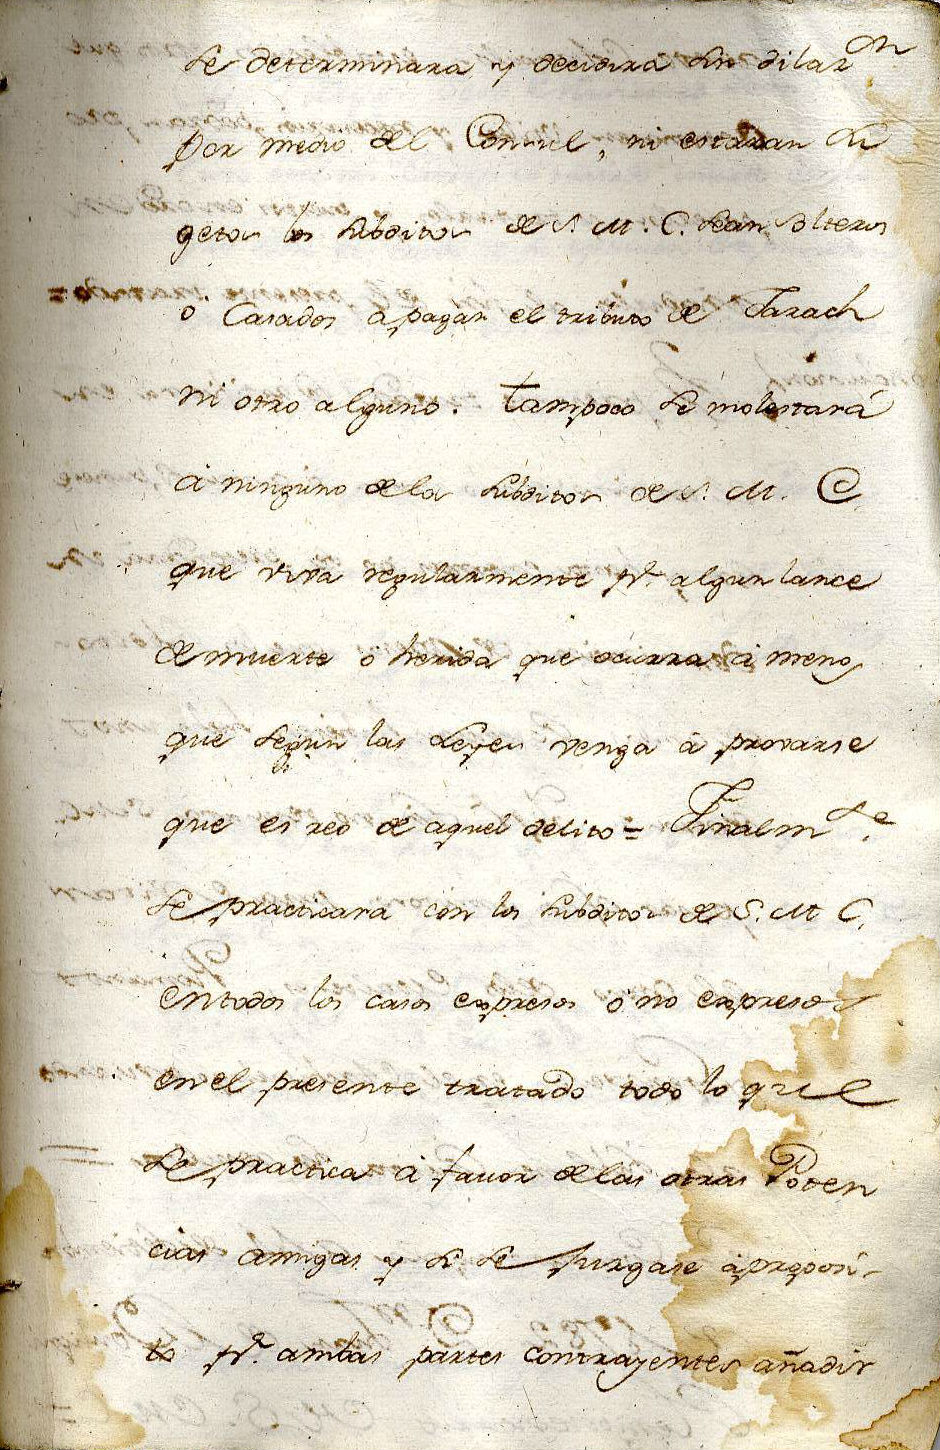 se determinara y decidirá sin dilaz.n
por medio del Consul, ni estaran su
getos los subditos de S. M. C. sean solteros
ó Casados a pagar el tributo de Jarach
ni otro alguno. Tampoco se molestará
a ninguno de los subditos de S. M. C.
que viva regularmente pr. algun lance
de muerte ó herida que ocurra a menos
que segun las Leyes venga a provarse
que es reo de aquel delito = Finalmte.
se practicara con los subditos de S. M C.
en todos los casos expresos ó no expresos
en el presente tratado todo lo que
se practica a favor de las otras Poten
cias amigas y si se jusgase aproposi-
to pr. ambas partes contrayentes añadir